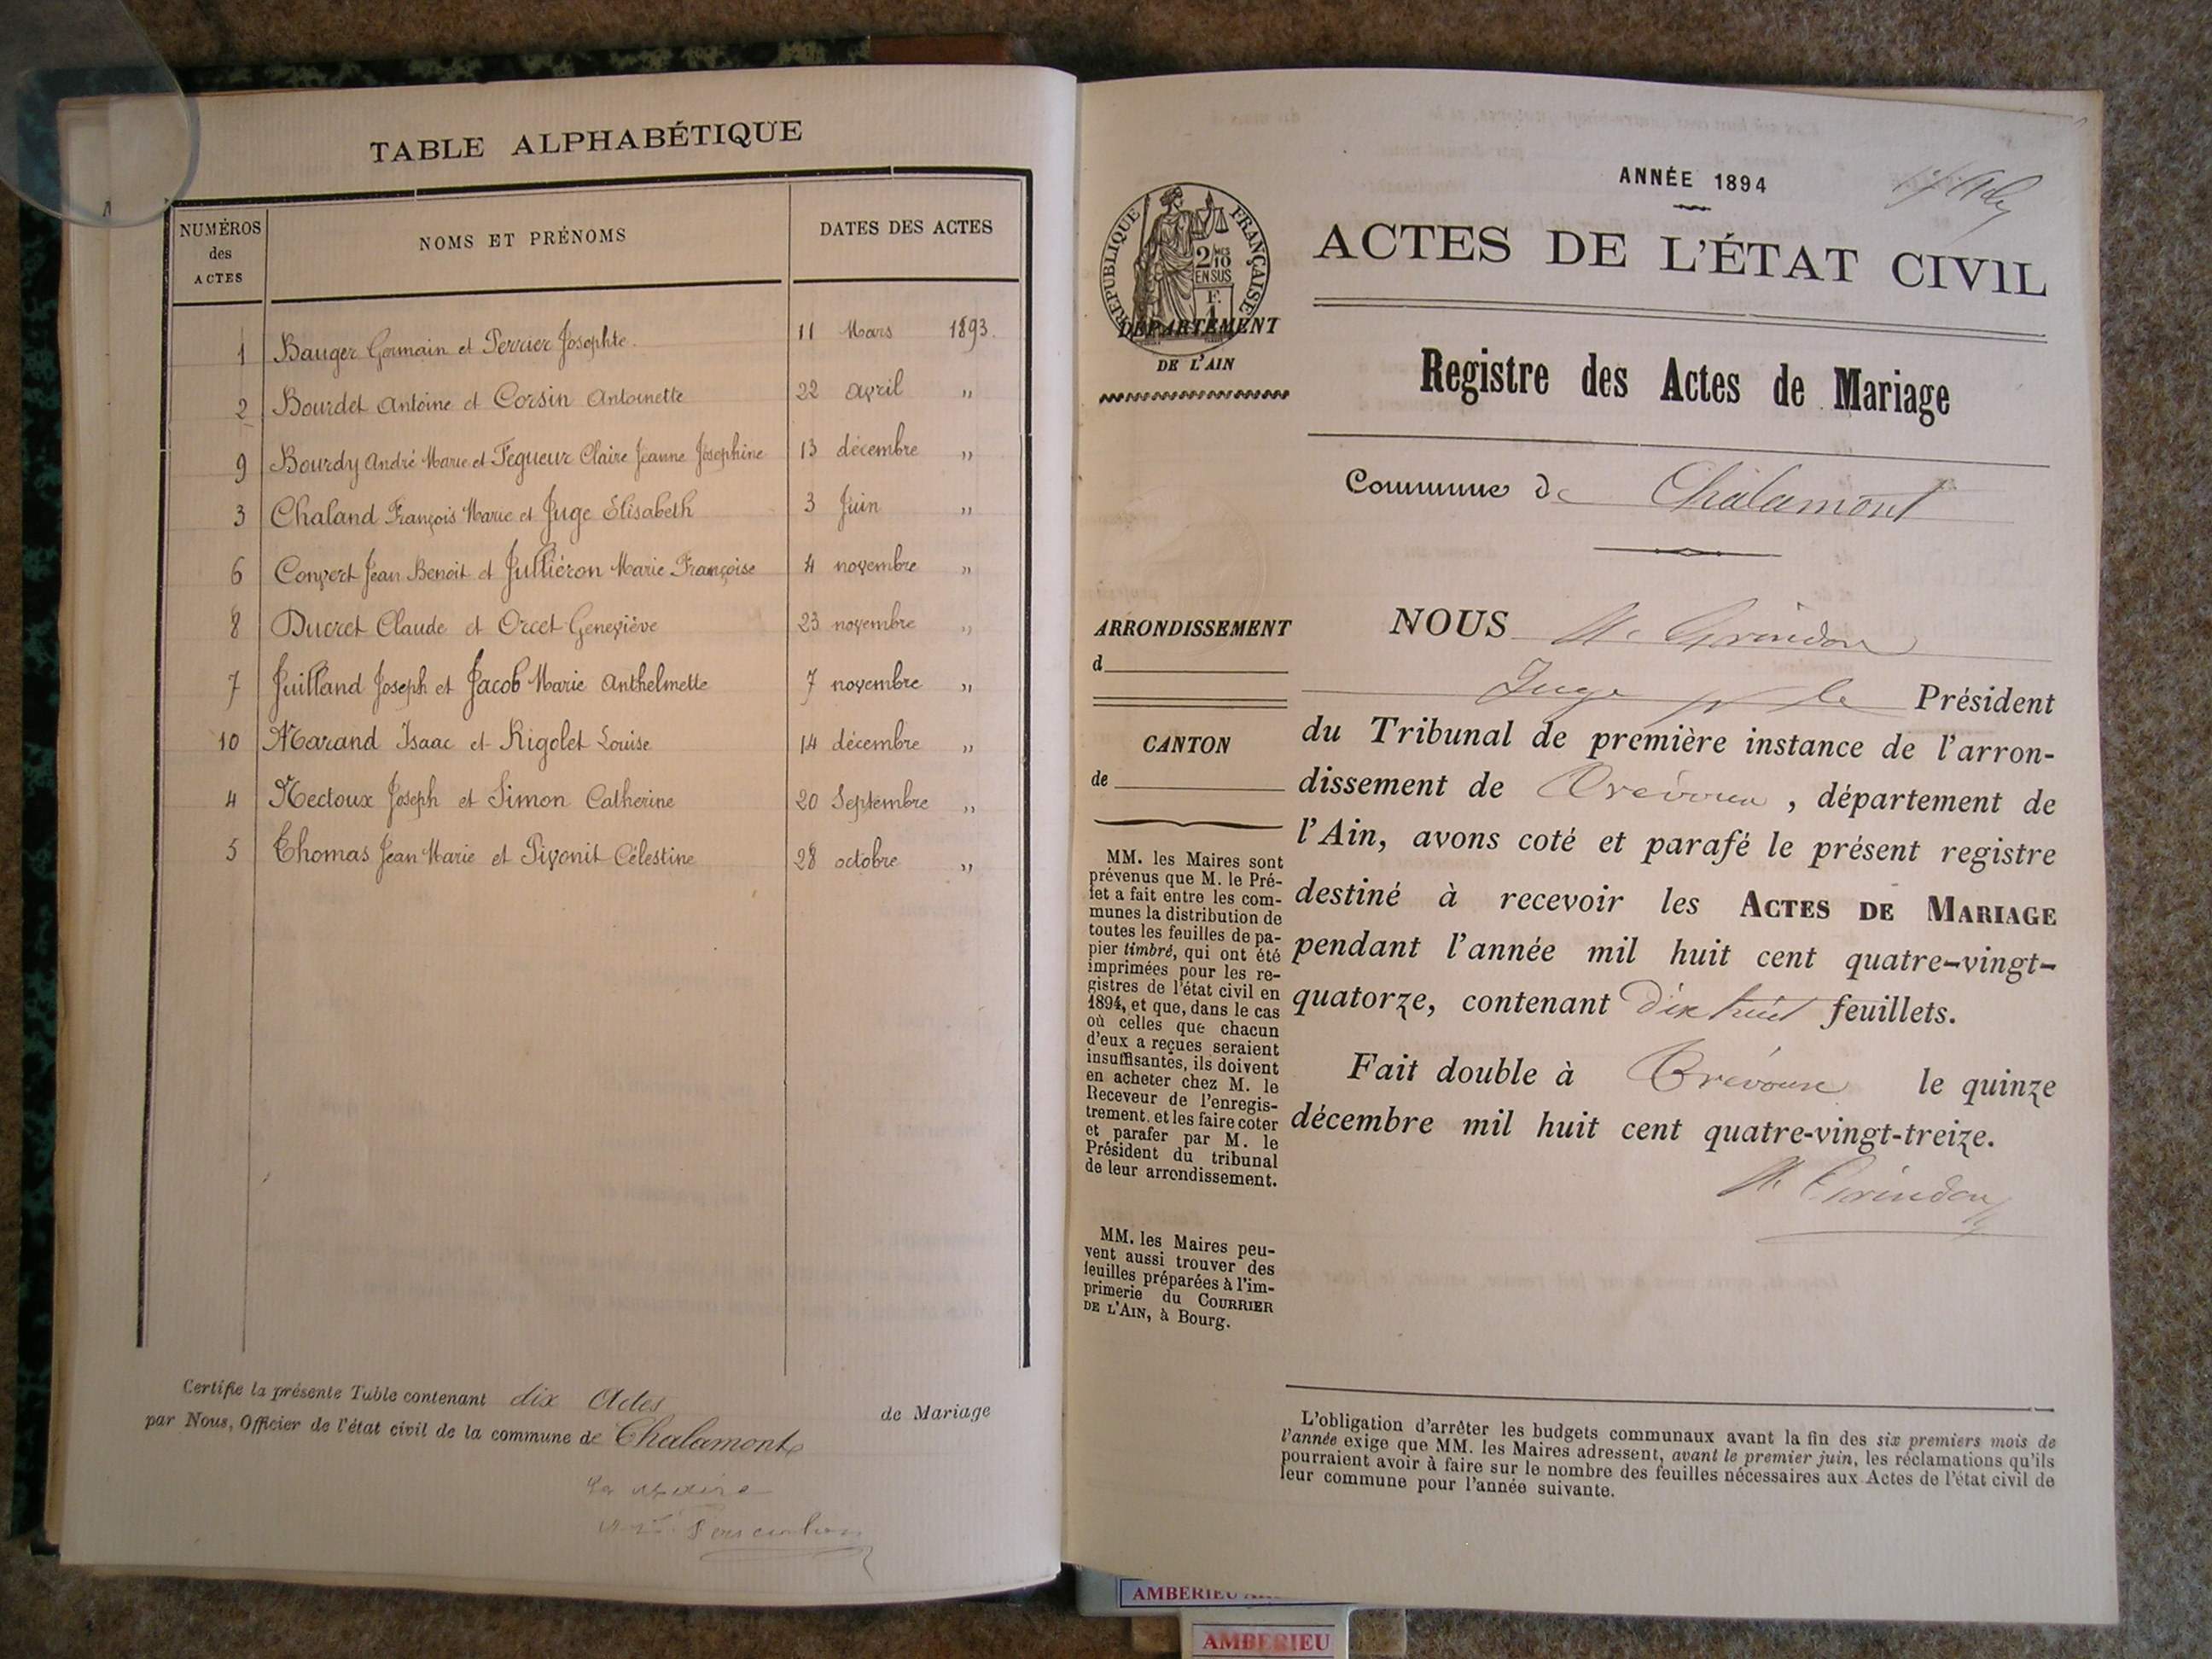 TABLE ALPHABÉTIQUE
NUMÉROS des ACTES NOMS ET PRÉNOMS DATES DES ACTES
1 Bauger Germain et Perrier Josephte. 11 Mars 1893.
2 Bourdet Antoine et Corsin Antoinette 22 avril "
9 Bourdy André Marie et Tegueur Claire Jeanne Joséphine 13 décembre "
3 Chaland François Marie et Juge Elisabeth 3 Juin "
6 Convert Jean Benoit et Jullieron Marie Françoise 4 novembre "
8 Ducret Claude et Orcet Geneviève 23 novembre "
7 Juilland Joseph et Jacob Marie Anthelmette 7 novembre "
10 Marand Isaac et Rigolet Louise 14 décembre "
4 Nectoux Joseph et Simon Catherine 20 Septembre "
5 Thomas Jean Marie et Pivonit Célestine 28 octobre "
Certifie la présente Table contenant dix Actes de Mariage
par Nous, Officier de l'état civil de la commune de Chalamont
Le Maire
ANNÉE 1894
ACTES DE L'ÉTAT CIVIL
RÉPUBLIQUE FRANÇAISE
2/10
EN SUS
F.
1
DÉPARTEMENT
DE L'AIN
Registre des Actes de Mariage
Commune de Chalamont
ARRONDISSEMENT
d
CANTON
de
MM. les Maires sont
prévenus que M. le Pré-
fet a fait entre les com-
munes la distribution de
toutes les feuilles de pa-
pier timbré, qui ont été
imprimées pour les re-
gistres de l'état civil en
1894, et que, dans le cas
où celles que chacun
d'eux a reçues seraient
insuffisantes, ils doivent
en acheter chez M. le
Receveur de l'enregis-
trement, et les faire coter
et parafer par M. le
Président du tribunal
de leur arrondissement.
MM. les Maires peu-
vent aussi trouver des
feuilles préparées à l'im-
primerie du COURRIER
DE L'AIN, à Bourg.
NOUS M. Grindon
Juge pr le Président
du Tribunal de première instance de l'arron-
dissement de Trévoux, département de
l'Ain, avons coté et parafé le présent registre
destiné à recevoir les ACTES DE MARIAGE
pendant l'année mil huit cent quatre-vingt-
quatorze, contenant dix huit feuillets.
Fait double à Trévoux le quinze
décembre mil huit cent quatre-vingt-treize.
M. Grindon
L'obligation d'arrêter les budgets communaux avant la fin des six premiers mois de
l'année exige que MM. les Maires adressent, avant le premier juin, les réclamations qu'ils
pourraient avoir à faire sur le nombre des feuilles nécessaires aux Actes de l'état civil de
leur commune pour l'année suivante.
AMBERIEU
AMBERIEU